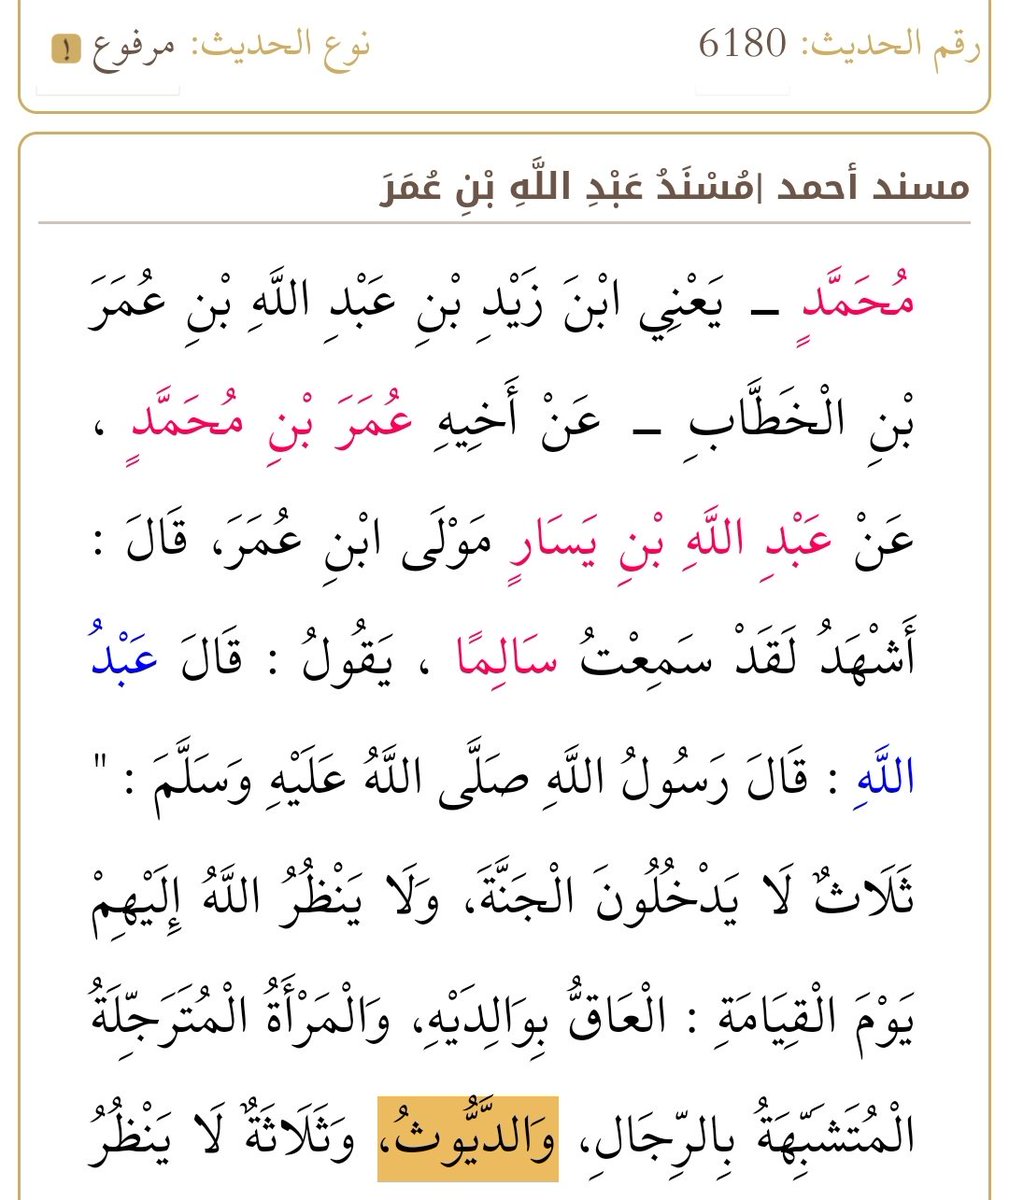 رقم الحديث: 6180 نوع الحديث: مرفوع !
مسند أحمد |مُسْنَدُ عَبْدِ اللَّهِ بْنِ عُمَرَ
مُحَمَّدٍ ـ يَعْنِي ابْنَ زَيْدِ بْنِ عَبْدِ اللَّهِ بْنِ عُمَرَ
بْنِ الْخَطَّابِ ـ عَنْ أَخِيهِ عُمَرَ بْنِ مُحَمَّدٍ ،
عَنْ عَبْدِ اللَّهِ بْنِ يَسَارٍ مَوْلَى ابْنِ عُمَرَ، قَالَ :
أَشْهَدُ لَقَدْ سَمِعْتُ سَالِمًا ، يَقُولُ : قَالَ عَبْدُ
اللَّهِ : قَالَ رَسُولُ اللَّهِ صَلَّى اللَّهُ عَلَيْهِ وَسَلَّمَ : "
ثَلَاثٌ لَا يَدْخُلُونَ الْجَنَّةَ، وَلَا يَنْظُرُ اللَّهُ إِلَيْهِمْ
يَوْمَ الْقِيَامَةِ : الْعَاقُّ بِوَالِدَيْهِ، وَالْمَرْأَةُ الْمُتَرَجِّلَةُ
الْمُتَشَبِّهَةُ بِالرِّجَالِ، وَالدَّيُّوثُ، وَثَلَاثَةٌ لَا يَنْظُرُ